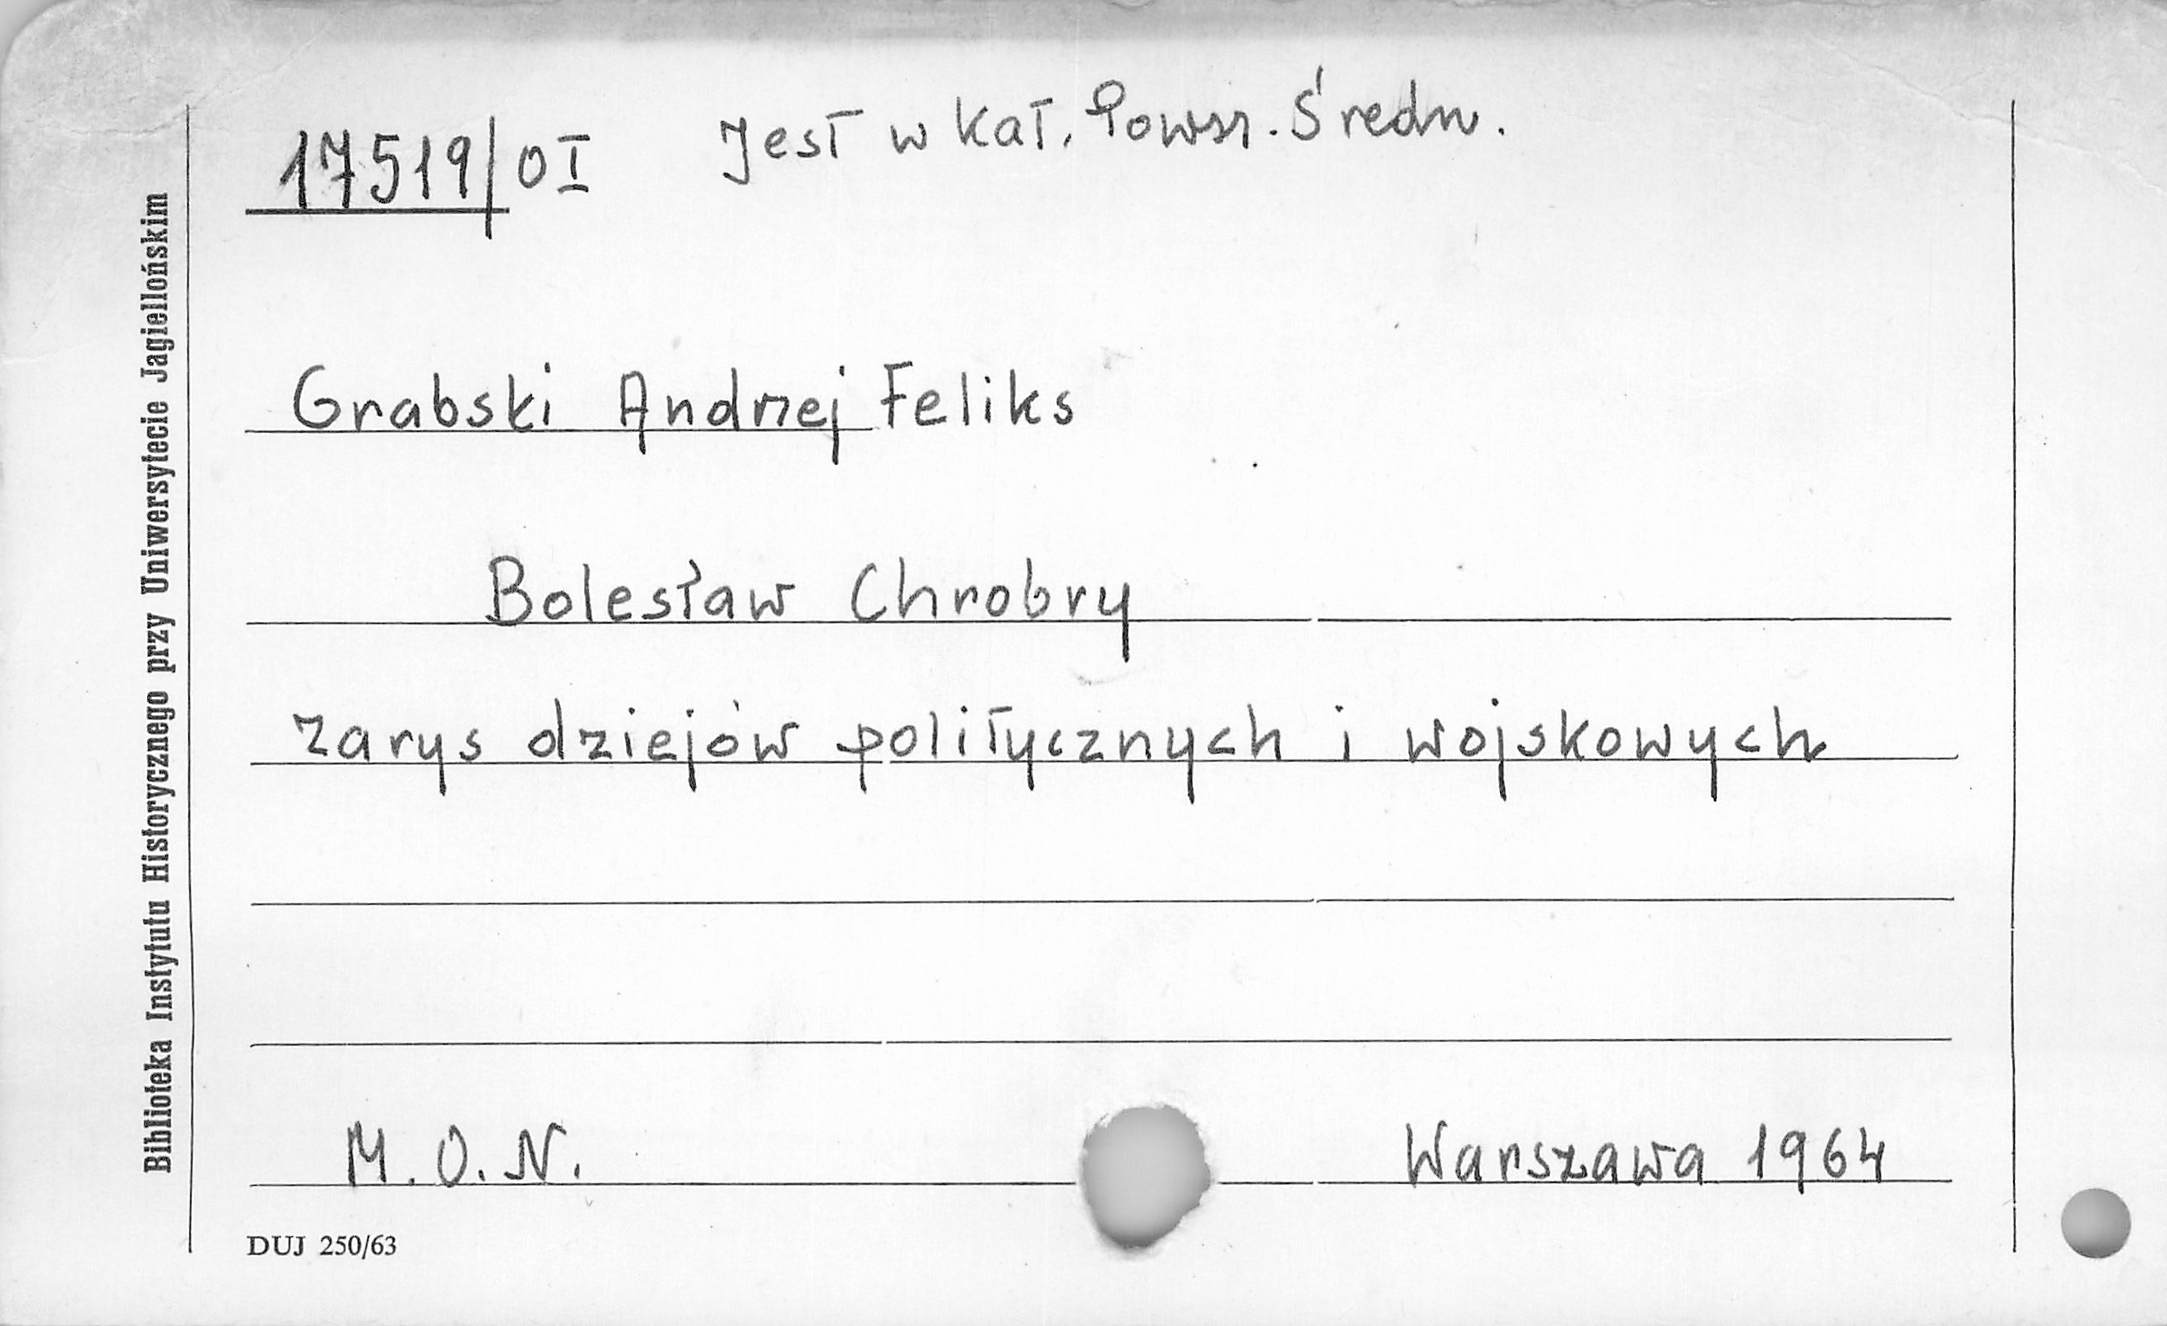 17519/OI Jest w kat. Powsz. Średn.
Grabski Andrzej Feliks
Bolesław Chrobry
zarys dziejów politycznych i wojskowych
M.O.N. Warszawa 1964
DUJ 250/63
Biblioteka Instytutu Historycznego przy Uniwersytecie Jagiellońskim